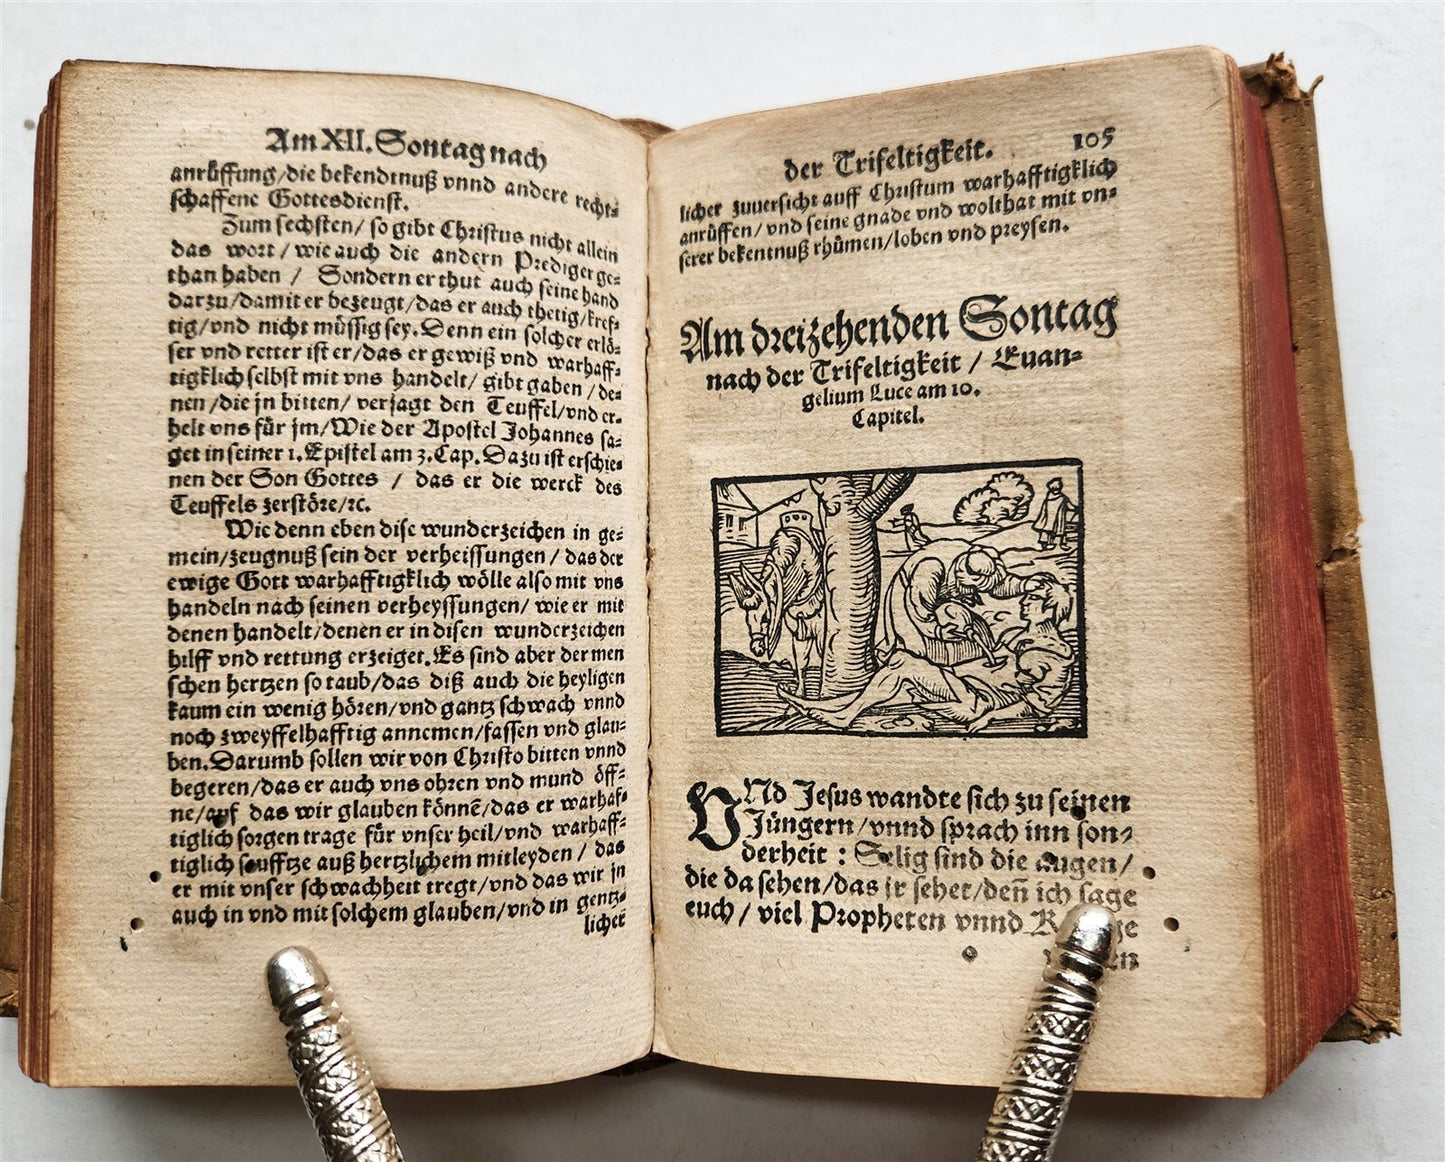 Am XII. Sontag nach
anrüffung/die bekendtnuß vnnd andere recht-
schaffene Gottesdienst.
Zum sechsten/ so gibt Christus nicht allein
das wort/wie auch die andern Prediger ge-
than haben / Sondern er thut auch seine hand
darzu/damit er bezeugt/das er auch thetig/kref-
tig/vnd nicht müssig sey. Denn ein solcher erlö-
ser vnd retter ist er/das er gewiß vnd warhaff-
tigklich selbst mit vns handelt/ gibt gaben /de-
nen /die jn bitten/ verjagt den Teuffel/vnd er-
helt vns für jm/Wie der Apostel Johannes sa-
get in seiner 1. Epistel am 3. Cap. Dazu ist erschie-
nen der Son Gottes / das er die werck des
Teuffels zerstöre/ꝛc.
Wie denn eben dise wunderzeichen in ge-
mein/zeugnuß sein der verheissungen / das der
ewige Gott warhafftigklich wölle also mit vns
handeln nach seinen verheyssungen/ wie er mit
denen handelt/denen er in disen wunderzeichen
hilff vnd rettung erzeiget. Es sind aber der men
schen hertzen so taub/das diß auch die heyligen
kaum ein wenig hören/vnd gantz schwach vnnd
noch zweyffelhafftig annemen/fassen vnd glau-
ben. Darumb sollen wir von Christo bitten vnnd
begeren/das er auch vns ohren vnd mund öff-
ne/auf das wir glauben könnē/das er warhaf-
tiglich sorgen trage für vnser heil/vnd warhaff-
tiglich seufftze auß hertzlichem mitleyden / das
er mit vnser schwachheit tregt/vnd das wir jn
auch in vnd mit solchem glauben/vnd in gentz-
licher
der Trifeltigkeit. 105
licher zuuersicht auff Christum warhafftigklich
anrüffen/vnd seine gnade vnd wolthat mit vn-
serer bekentnuß rhümen/loben vnd preysen.
Am dreizehenden Sontag
nach der Trifeltigkeit / Euan-
gelium Luce am 10.
Capitel.
VNd Jesus wandte sich zu seinen
Jüngern/vnnd sprach inn son-
derheit : Selig sind die augen/
die da sehen/das jr sehet/deñ ich sage
euch / viel Propheten vnnd